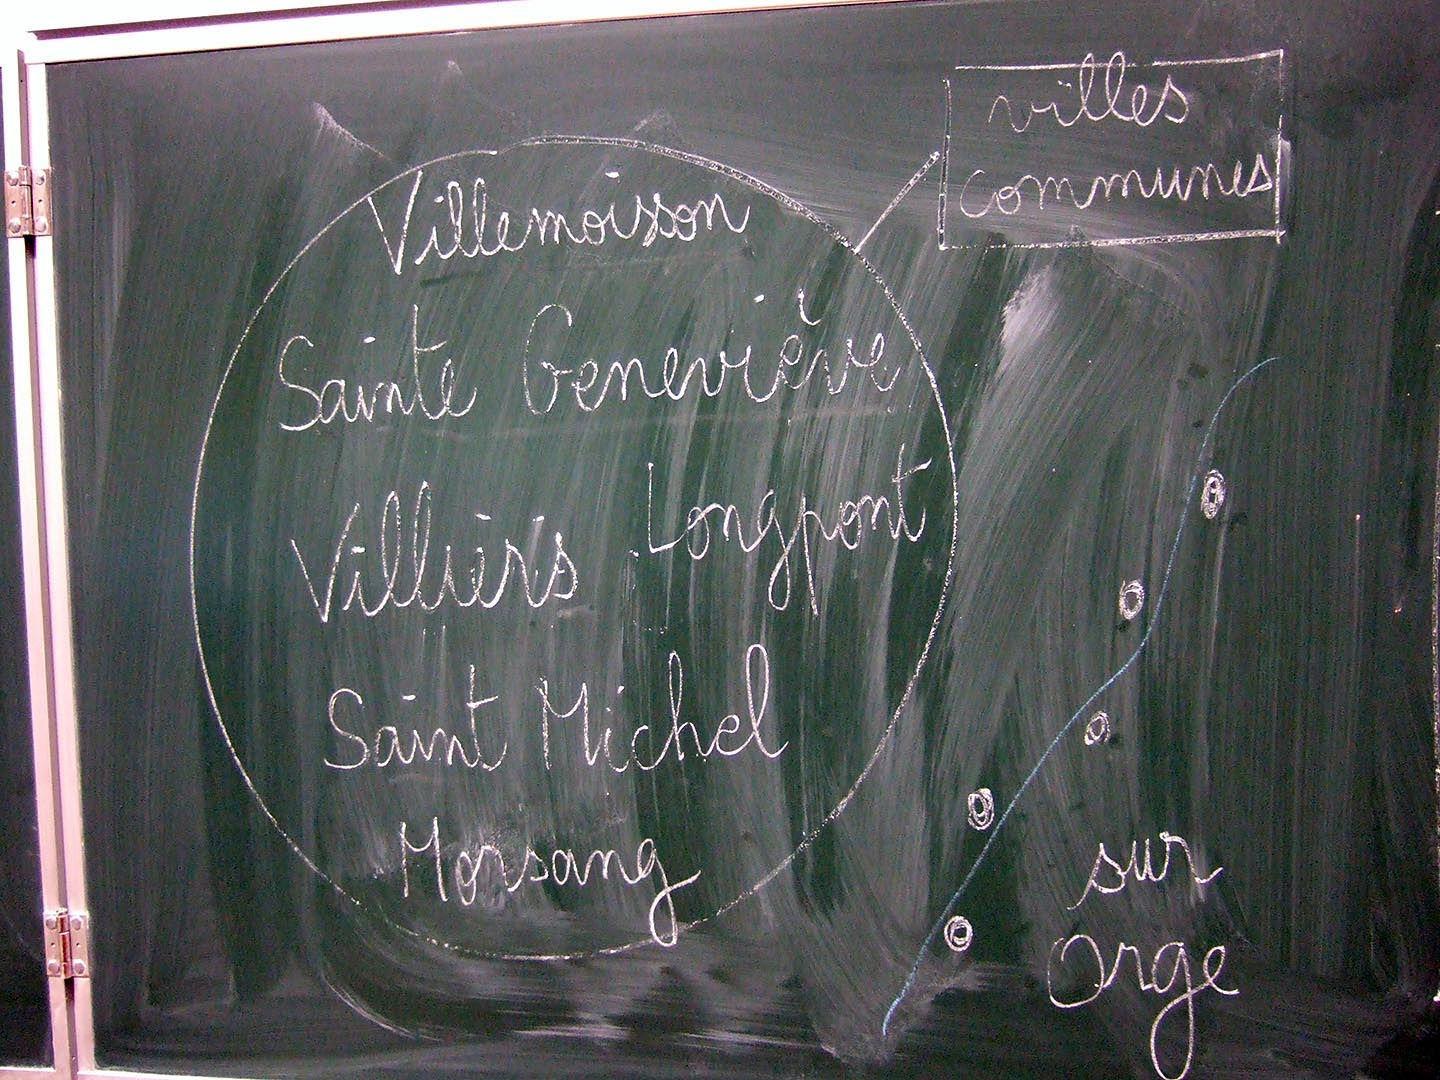 villes
communes
Villemoisson
Sainte Geneviève
Villiers Longpont
Saint Michel
Morsang
sur
Orge